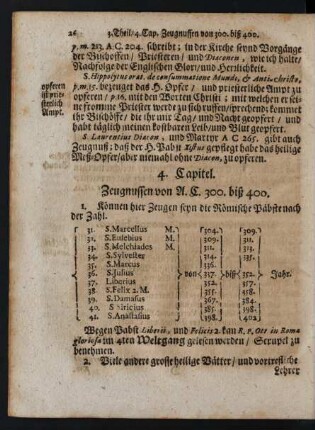 26 3. Theil / 4. Cap. Zeugnussen von 300. biß 400.
p. m. 213. A. C. 204. schreibt; in der Kirche seynd Vorgänge
der Bischoffen / Priesteren / und Diaconen, wie ich halte /
Nachfolge der Englischen Glori / und Herrlichkeit.
S. Hippolytus orat. de consummatione Mundi, & Anti-Christo,
opferen
ist prie-
sterlich
Ampt.
p. m. 15. bezeuget das H. Opfer / und priesterliche Ampt zu
opferen / p. 16. mit den Worten Christi; mit welchen er sei-
ne fromme Priester werde zu sich ruffen / sprechend: kommet
ihr Bischöffe / die ihr mir Tag / und Nacht geopfert / und
habt täglich meinen kostbaren Leib / und Blut geopfert.
S. Laurentius Diacon, und Martyr A C 265. gibt auch
Zeugnuß: daß der H. Pabst Xistus gepflegt habe das heilige
Meß-Opfer / aber niemahl ohne Diacon, zu opferen.
4. Capitel.
Zeugnussen von A. C. 300. biß 400.
1. Können hier Zeugen seyn die Römische Päbste nach
der Zahl.
31. S. Marcellus M. 304. 309.
32. S. Eusebius M. 309. 311.
33. S. Melchiades M. 311. 314.
34. S. Sylvester 314.
35. S. Marcus
36. S. Julius von 337. biß 352. Jahr.
37. Liberius 352.
38. S. Felix 2. M.
39. S. Damasus
40. S. Siricius 385. 398.
41. S. Anastasius 398. 402.
Wegen Pabst Liberii, und Felicis 2. kan R. P. Ott in Roma
gloriosa im 4ten Weltgang gelesen werden / Scrupel zu
benehmen.
2. Viele andere grosse heilige Vätter / und vortrefliche
Lehrer